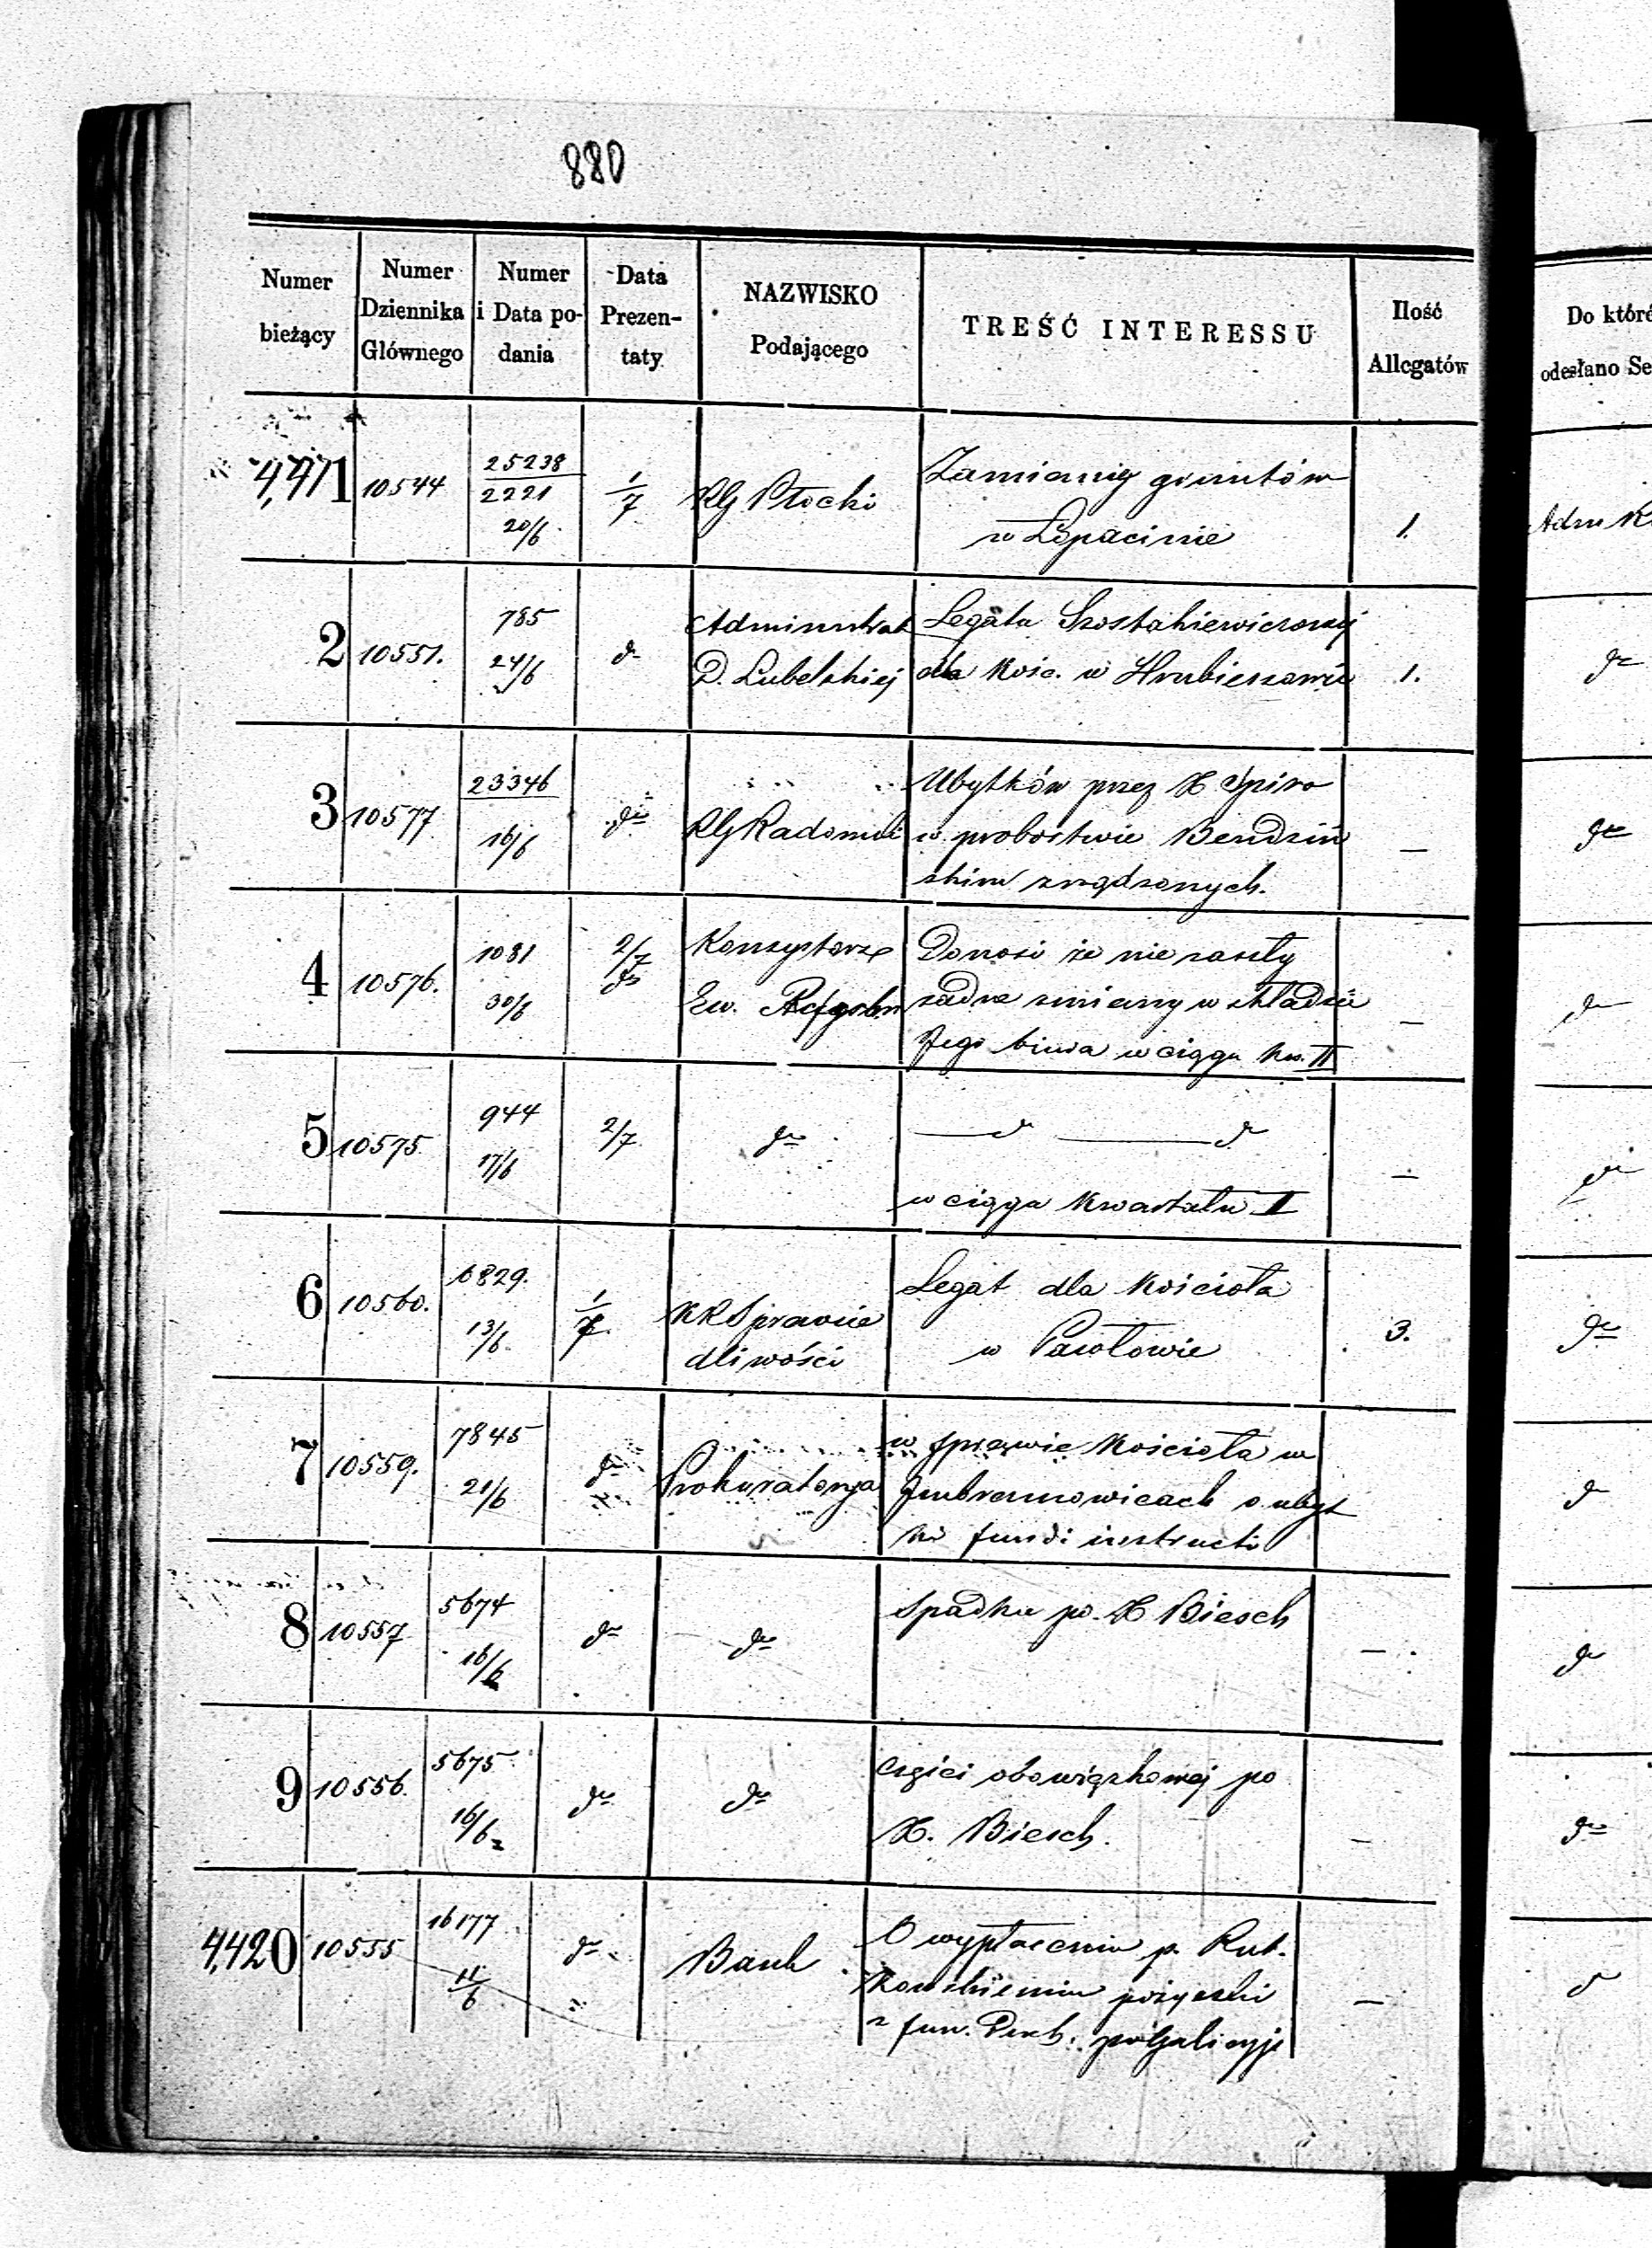 880
Numer bieżący | Numer Dziennika Głównego | Numer i Data podania | Data Prezentaty | NAZWISKO Podającego | TREŚĆ INTERESSU | Ilość Allegatów | Do które
odesłano Se
4,471 | 10544 | 25238 / 2221 20/6 | 1/7 | RG Płocki | Zamiany gruntów
w Łopacinie | 1. | Adm K
2 | 10551. | 785 24/6 | d | Administrat
D. Lubelskiej | Legatu Szostakiewiczowej
dla Kośc. w Hrubieszowie | 1. | do
3 | 10577 | 23346 16/6 | do | RG Radomski | Ubytków przez X Spiro
w probostwie Bendziń
skim zrządzonych. | — | do
4 | 10576. | 1081 30/6 | 2/7 do | Konsystorz
Ew. | Donosi że nie zaszły
żadne zmiany w składzie
Jego biura w ciągu kw. II | — | do
5 | 10575 | 944 17/6 | 2/7 | do | — d — d
w ciągu Kwartału I | — | do
6 | 10560. | 6829. 13/6. | 1/7. | KRSprawie
dliwości | Legat dla Kościoła
w Pawłowie | 3. | do
7 | 10559. | 7845 21/6 | do | Prokuratorya | w sprawie Kościoła w
Imbramowicach o ubyt
ki fundi instructi | d
8 | 10557 | 5674 16/6 | do | do | Spadku po X Biesch | — | do
9 | 10556. | 5675 16/6 | do | do | części obowiązkowej po
X. Biesch. | — | do
4,420 | 10555 | 16177 11/6 | do | Bank | O wypłaceniu p. Rut-
kowskiemu pożyczki
z fun. po Galicyjs | — | d